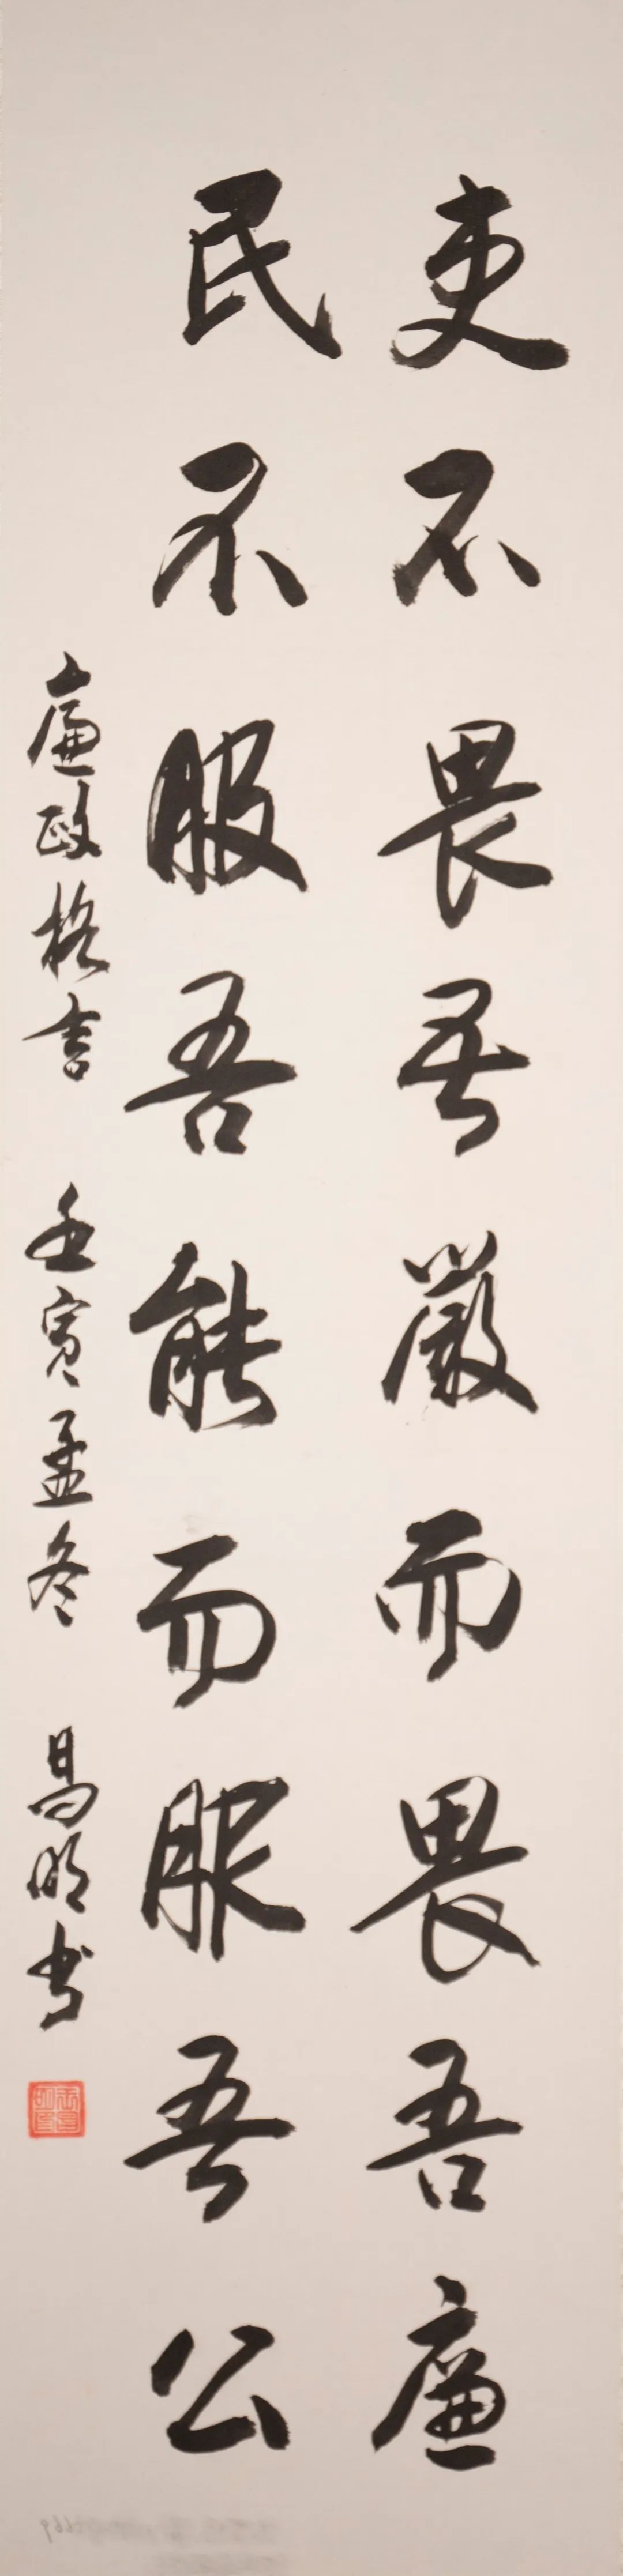 吏不畏吾嚴而畏吾廉
民不服吾能而服吾公
廉政格言 壬寅孟冬 昌明书